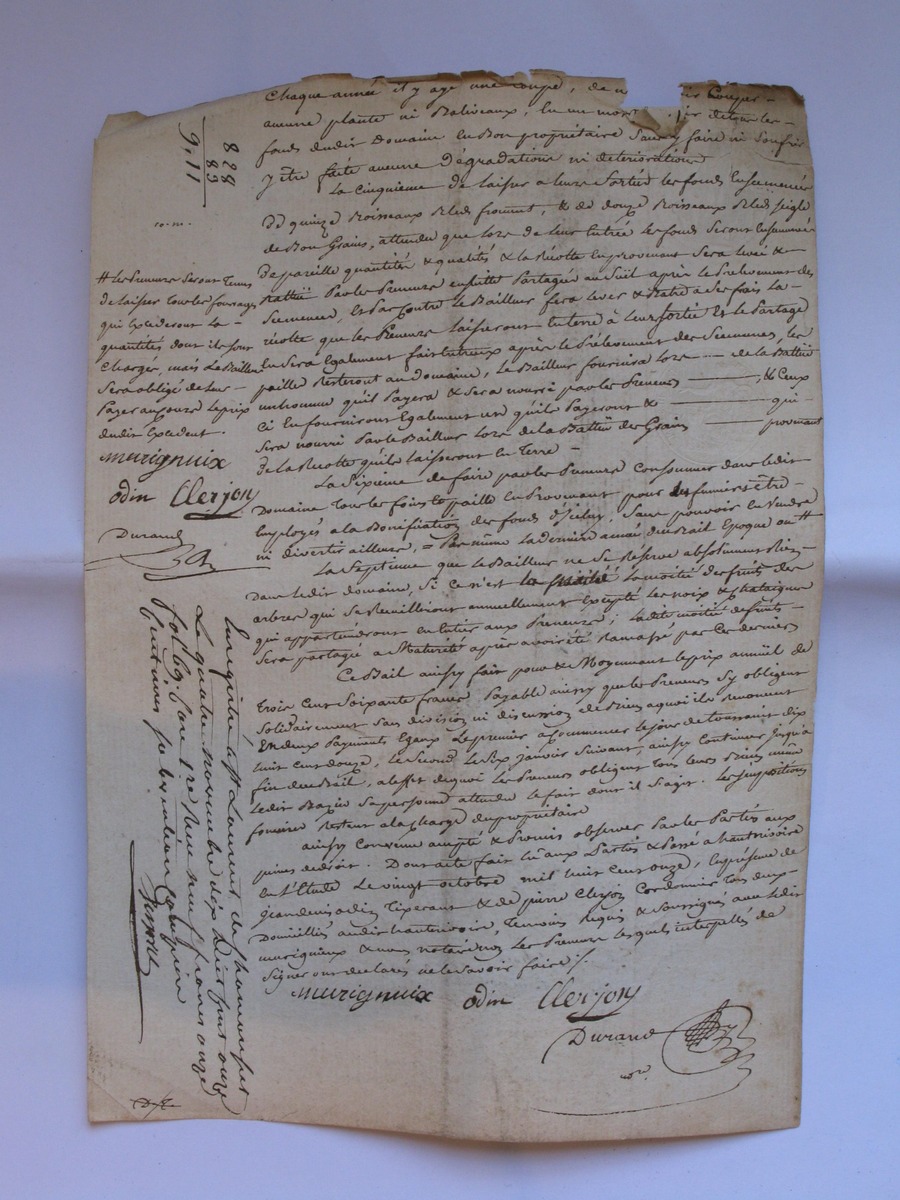 Chaque année il y aye une coupe, de n ir Couper
aucune plante ni Baliveaux, Enun mot jir de tous les
fonds dudit Domaine En Bon propriétaire Sans y faire ni Soufrir
y être faite aucune dégradations ni deteriorations
La Cinquieme de laisser a leur Sortie les fonds Ensemencés
De quinze Boisseaux Bled froment, & de douze Boisseaux Bled seigle
de Bon Grains, attendu que lors de leur Entrée les fonds Seront Ensemencés
De pareille quantités & qualités & la Récolte En provenant Sera levée &
Battüe Par les Preneurs ensuitte Partagée au Suil après le Prelevement des
Semences, Et Par Contre le Bailleur fera lever & Batre a Ses fais la
récolte que les Preneurs laisseront En terre à leur sortie Et le Partage
En Sera Egalement fait Entreux après le Prélevement des Semences, les
paille Resteront au Domaine, le Bailleur fournira lors de la Battüe
un homme qu'il Payera & Sera nourri par les Preneurs & Ceux
Ci En fourniront Egalement un qu'ils Payeront & qui
Sera nourri Par le Bailleur lors de la Battüe des Grains provenant
De la Recolte qu'ils laisseront En Terre
La Sixieme de faire par les Preneurs Consommer dans ledit
Domaine Tous les foins & paille En Provenant pour les fumiers être
Employés a la Bonification des fonds d'Icelui, Sans pouvoir En Vendre
ni divertir ailleurs, = Pas même la derniere année du Bail Epoque ou #
La Septieme que le Bailleur ne Se Réserve absolument Rien
Dans ledit domaine, Si ce n'est la moitié des fruits des
arbres qui Se Recuilliront annuellement Excepté les noix & chataignes
qui appartiendront en Entier aux Preneurs; ladite moitié de fruits
Sera partagée a Maturité après avoir été Ramassé par Ces derniers
Ce Bail ainsy fait pour & Moyennant le prix annüel de
trois Cent Soixante francs Payable ainsy que les Preneurs S'y obligent
Solidairement Sans division ni discussion de Biens a quoi ils renoncent
En deux Payements Egaux le premier a Commencer le jour de toussaint dix
huit cent douze, le Second le Six janvier Suivant, ainsy Continuer Jusqu'à
fin du Bail, a l'effet de quoi les Preneurs obligent Tous leurs Biens même
ledit Sa personne attendu le fait dont il S'agit. les jmpositions
foncière Restent a la Charge du propriétaire
ainsy Convenu accepté & Promis observer Par les Parties aux
peines de droit. Dont acte fait lû aux Parties & Passé a hauterivoire
En l'Etude Le vingt octobre mil huit Cent onze, En présence de
jean denis odin Tixerant & de pierre Clerjon Cordonnier Tous deux
Domiciliés audit hauterivoire, Temoins Requis & Soussignés avec ledit
murigneux & nous notaire non les Preneurs lesquels interpellés de
Signer ont declarés ne le Savoir faire /.
murignuix odin Clerjon
Durand
828
83
9.11
# les Preneurs Seront Tenus
de laisser Tous les fourrages
qui Excederont la
quantités dont ils Sont
Charger, mais le Bailleur
Sera obligé de leur
Payer au jour le prix
dudit Excedent.
murignuix
odin Clerjon
Durand
Enregistré à St Laurent de Chamousset
Le quatre novembre dix huit cent onze
fol. 69 Case 1re Reçu neuf francs onze
Centimes